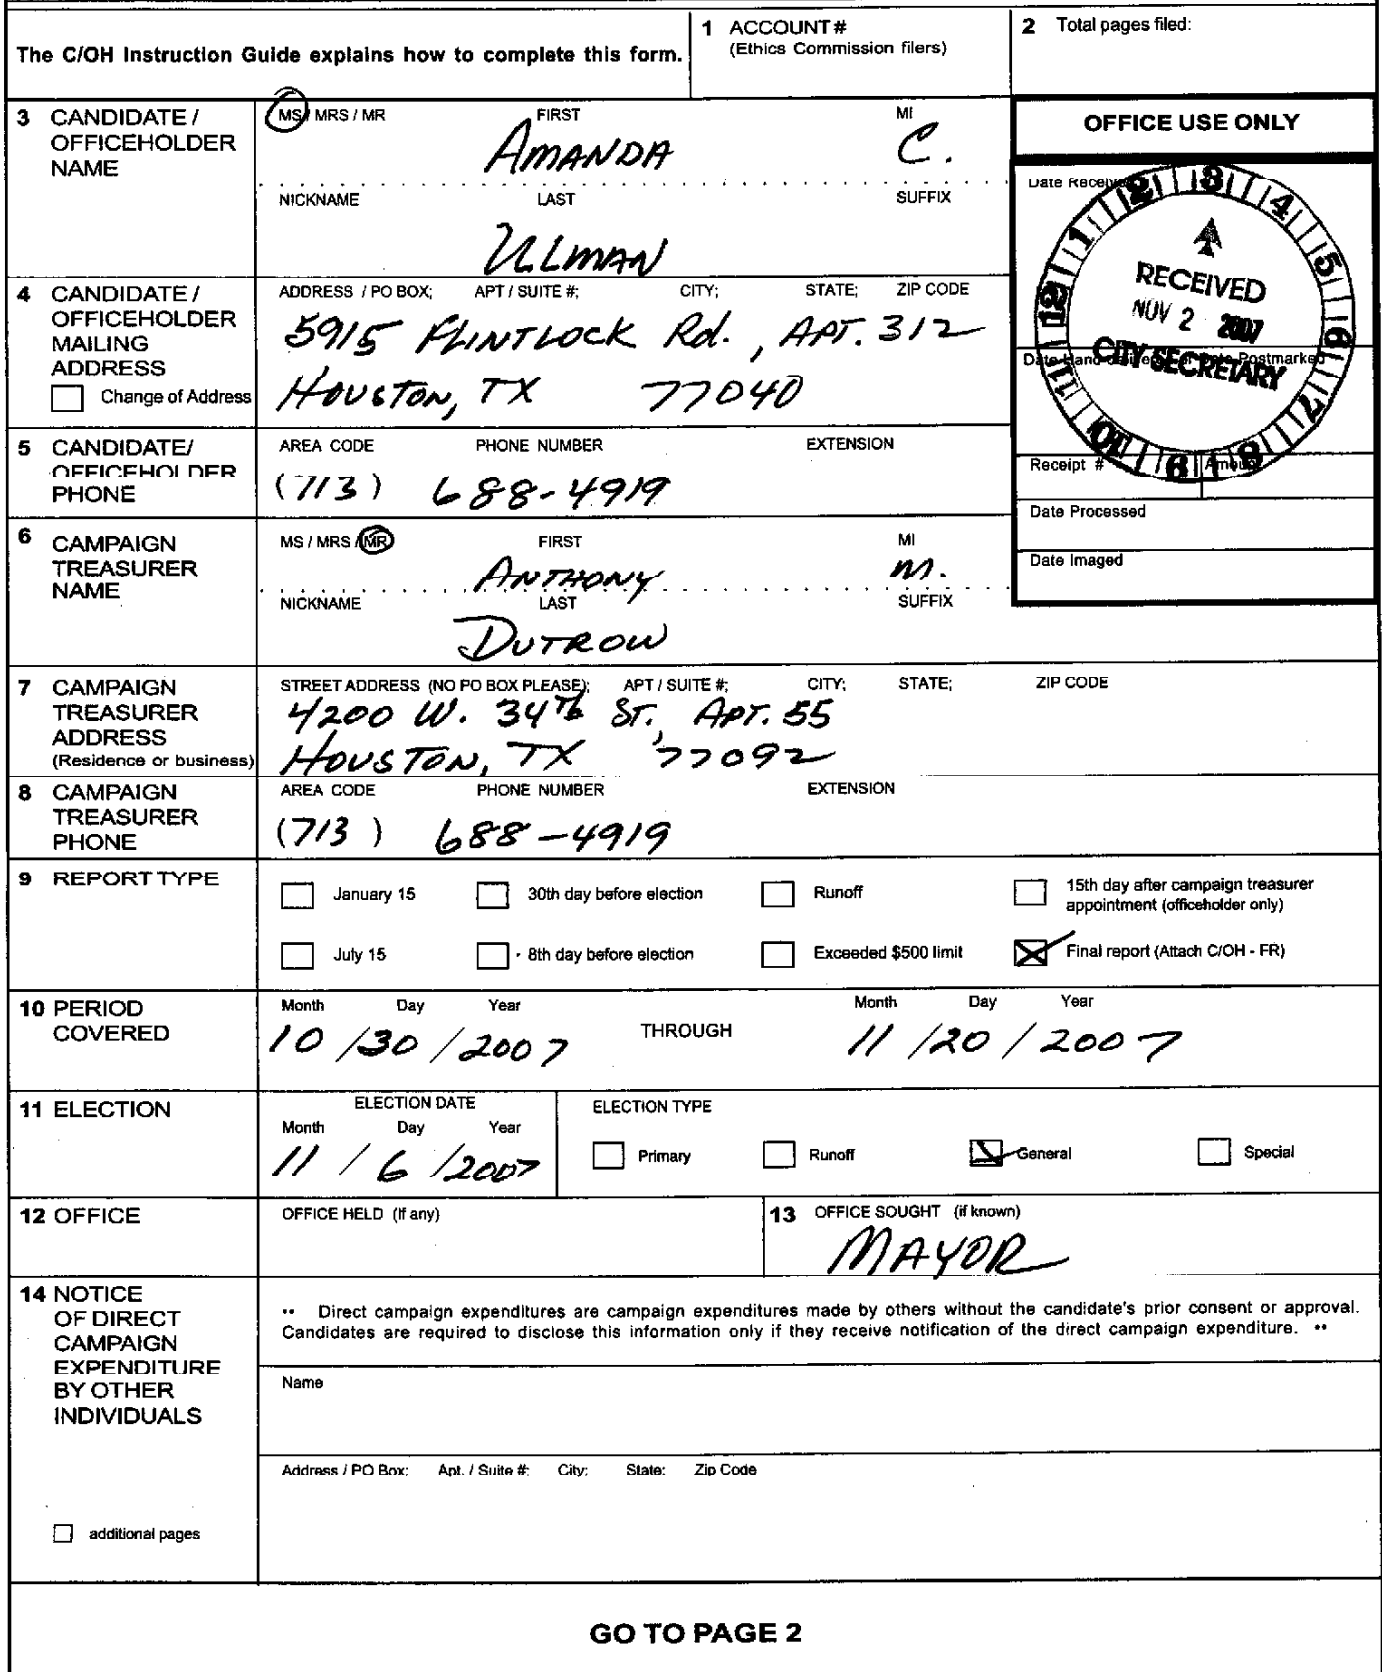 1 ACCOUNT # 2 Total pages filed:
The C/OH Instruction Guide explains how to complete this form. (Ethics Commission filers)
3 CANDIDATE / OFFICEHOLDER NAME
MS / MRS / MR FIRST MI
AMANDA C.
NICKNAME LAST SUFFIX
ULMAN
OFFICE USE ONLY
Date Received
12 1 2 3 4 5 6 7 8 9 10 11
RECEIVED
NOV 2 2007
CITY SECRETARY
Postmarked
Receipt # Amount
Date Processed
Date Imaged
4 CANDIDATE / OFFICEHOLDER MAILING ADDRESS
Change of Address
ADDRESS / PO BOX; APT / SUITE #; CITY; STATE; ZIP CODE
5915 FLINTLOCK Rd., APT. 312
HOUSTON, TX 77040
5 CANDIDATE/ OFFICEHOLDER PHONE
AREA CODE PHONE NUMBER EXTENSION
(713) 688-4919
6 CAMPAIGN TREASURER NAME
MS / MRS / MR FIRST MI
ANTHONY M.
NICKNAME LAST SUFFIX
DUTROW
7 CAMPAIGN TREASURER ADDRESS
(Residence or business)
STREET ADDRESS (NO PO BOX PLEASE); APT / SUITE #; CITY; STATE; ZIP CODE
4200 W. 34th ST., APT. 55
HOUSTON, TX 77092
8 CAMPAIGN TREASURER PHONE
AREA CODE PHONE NUMBER EXTENSION
(713) 688-4919
9 REPORT TYPE
January 15 30th day before election Runoff 15th day after campaign treasurer appointment (officeholder only)
July 15 8th day before election Exceeded $500 limit Final report (Attach C/OH - FR)
10 PERIOD COVERED
Month Day Year Month Day Year
10 / 30 / 2007 THROUGH 11 / 20 / 2007
11 ELECTION
ELECTION DATE ELECTION TYPE
Month Day Year
11 / 6 / 2007 Primary Runoff General Special
12 OFFICE
OFFICE HELD (if any) 13 OFFICE SOUGHT (if known)
MAYOR
14 NOTICE OF DIRECT CAMPAIGN EXPENDITURE BY OTHER INDIVIDUALS
•• Direct campaign expenditures are campaign expenditures made by others without the candidate's prior consent or approval.
Candidates are required to disclose this information only if they receive notification of the direct campaign expenditure. ••
Name
Address / PO Box; Apt. / Suite #; City; State; Zip Code
additional pages
GO TO PAGE 2